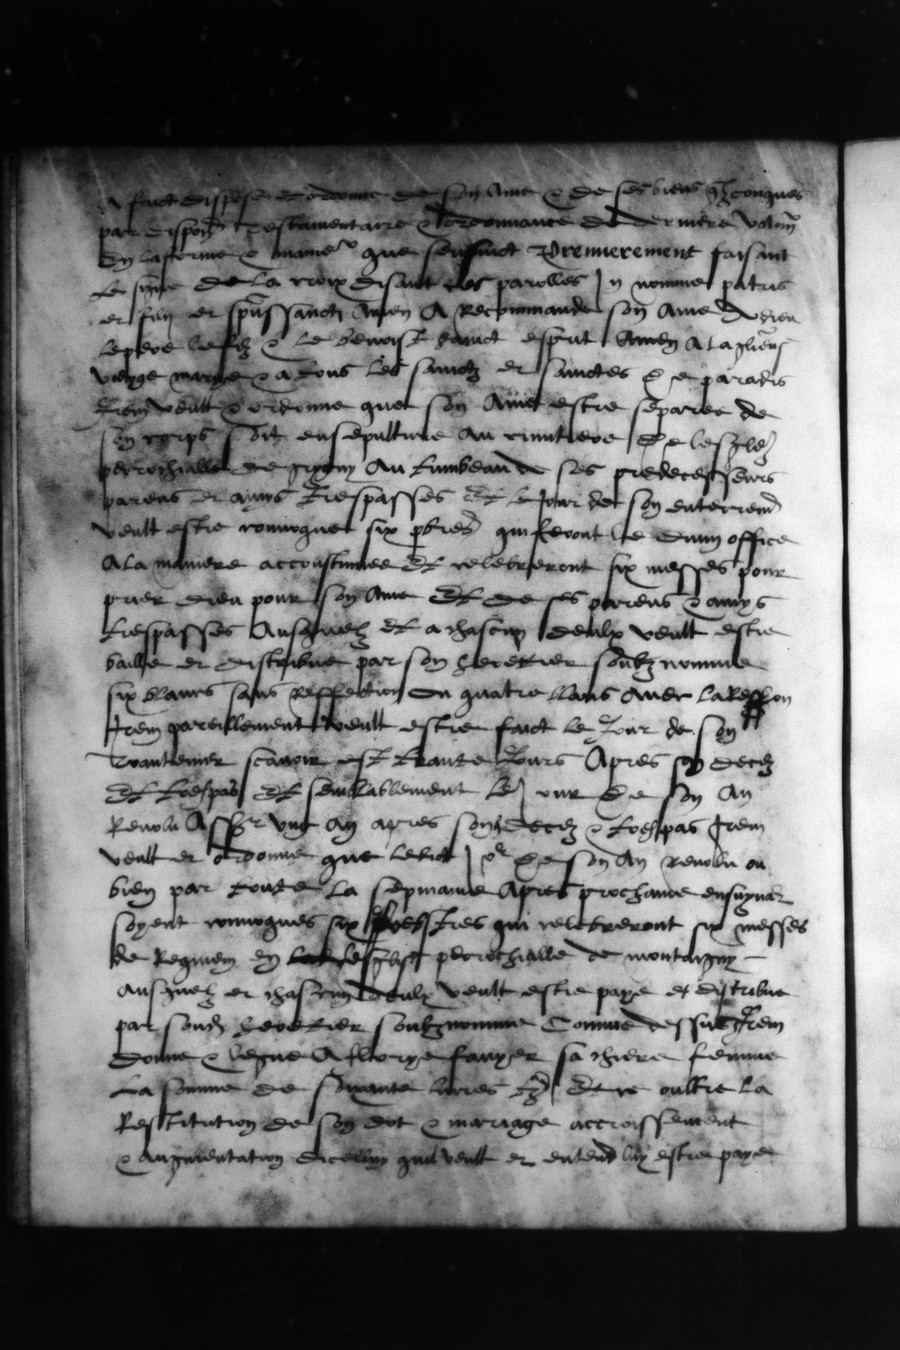 A faict dispose et ordonne de son ame & de ses biens qzconques
par disposon testamentaire & ordonnance de derniere volunte
En la forme & maniere que sensuict Premierement faisant
Le signe de la croix disant les parolles In nomine patris
et filii et spussancti Amen A Recommande son ame A dieu
le pere le filz & le benoist sainct esprit Amen A la glieuse
vierge marie & a tous les sainctz et sainctes de paradis
Item veult & ordonne que son Ame estre separee de
son corps soit ensepulture au cimitiere de lesglez
perrochialle de au tumbeau de ses predecesseurs
parens et amys trespasses Et le Jour de son enterremt
veult estre convoques six pbres qui feront le divin office
A la maniere accoustumee Et celebreront six messes pour
prier dieu pour son ame Et de ses parens & amys
trespasses Ausquelz Et a chascun deulx veult estre
baille et distribue par son heretier soubz nomme
six blancs sans Reffection ou quatre blans avec la Reffon
Item pareillement veult estre faict le Jour de son
trantenier scavoir est trante Jours Apres son decez
Et trespas Et semblablement le Jour de son An
Revolu Asscr ung an apres sond decez & trespas Item
veult et ordonne que ledict Jor de son An revolu ou
bien par toute la sepmaine Apres prochaine ensuyvat
soyent convoques six pbestres qui celebreront six messes
de Requiem en lesglise perrochialle de montaigny
Ausquelz et chascun deulx veult estre paye et distribue
par sond heretier soubznomme Comme dessus Item
donne & legue A sa chiere femme
La somme de soixante livres tz Et ce oultre la
Restitution de son dot & mariage accroissement
& augmentation dicelluy quil veult et entend luy estre paye